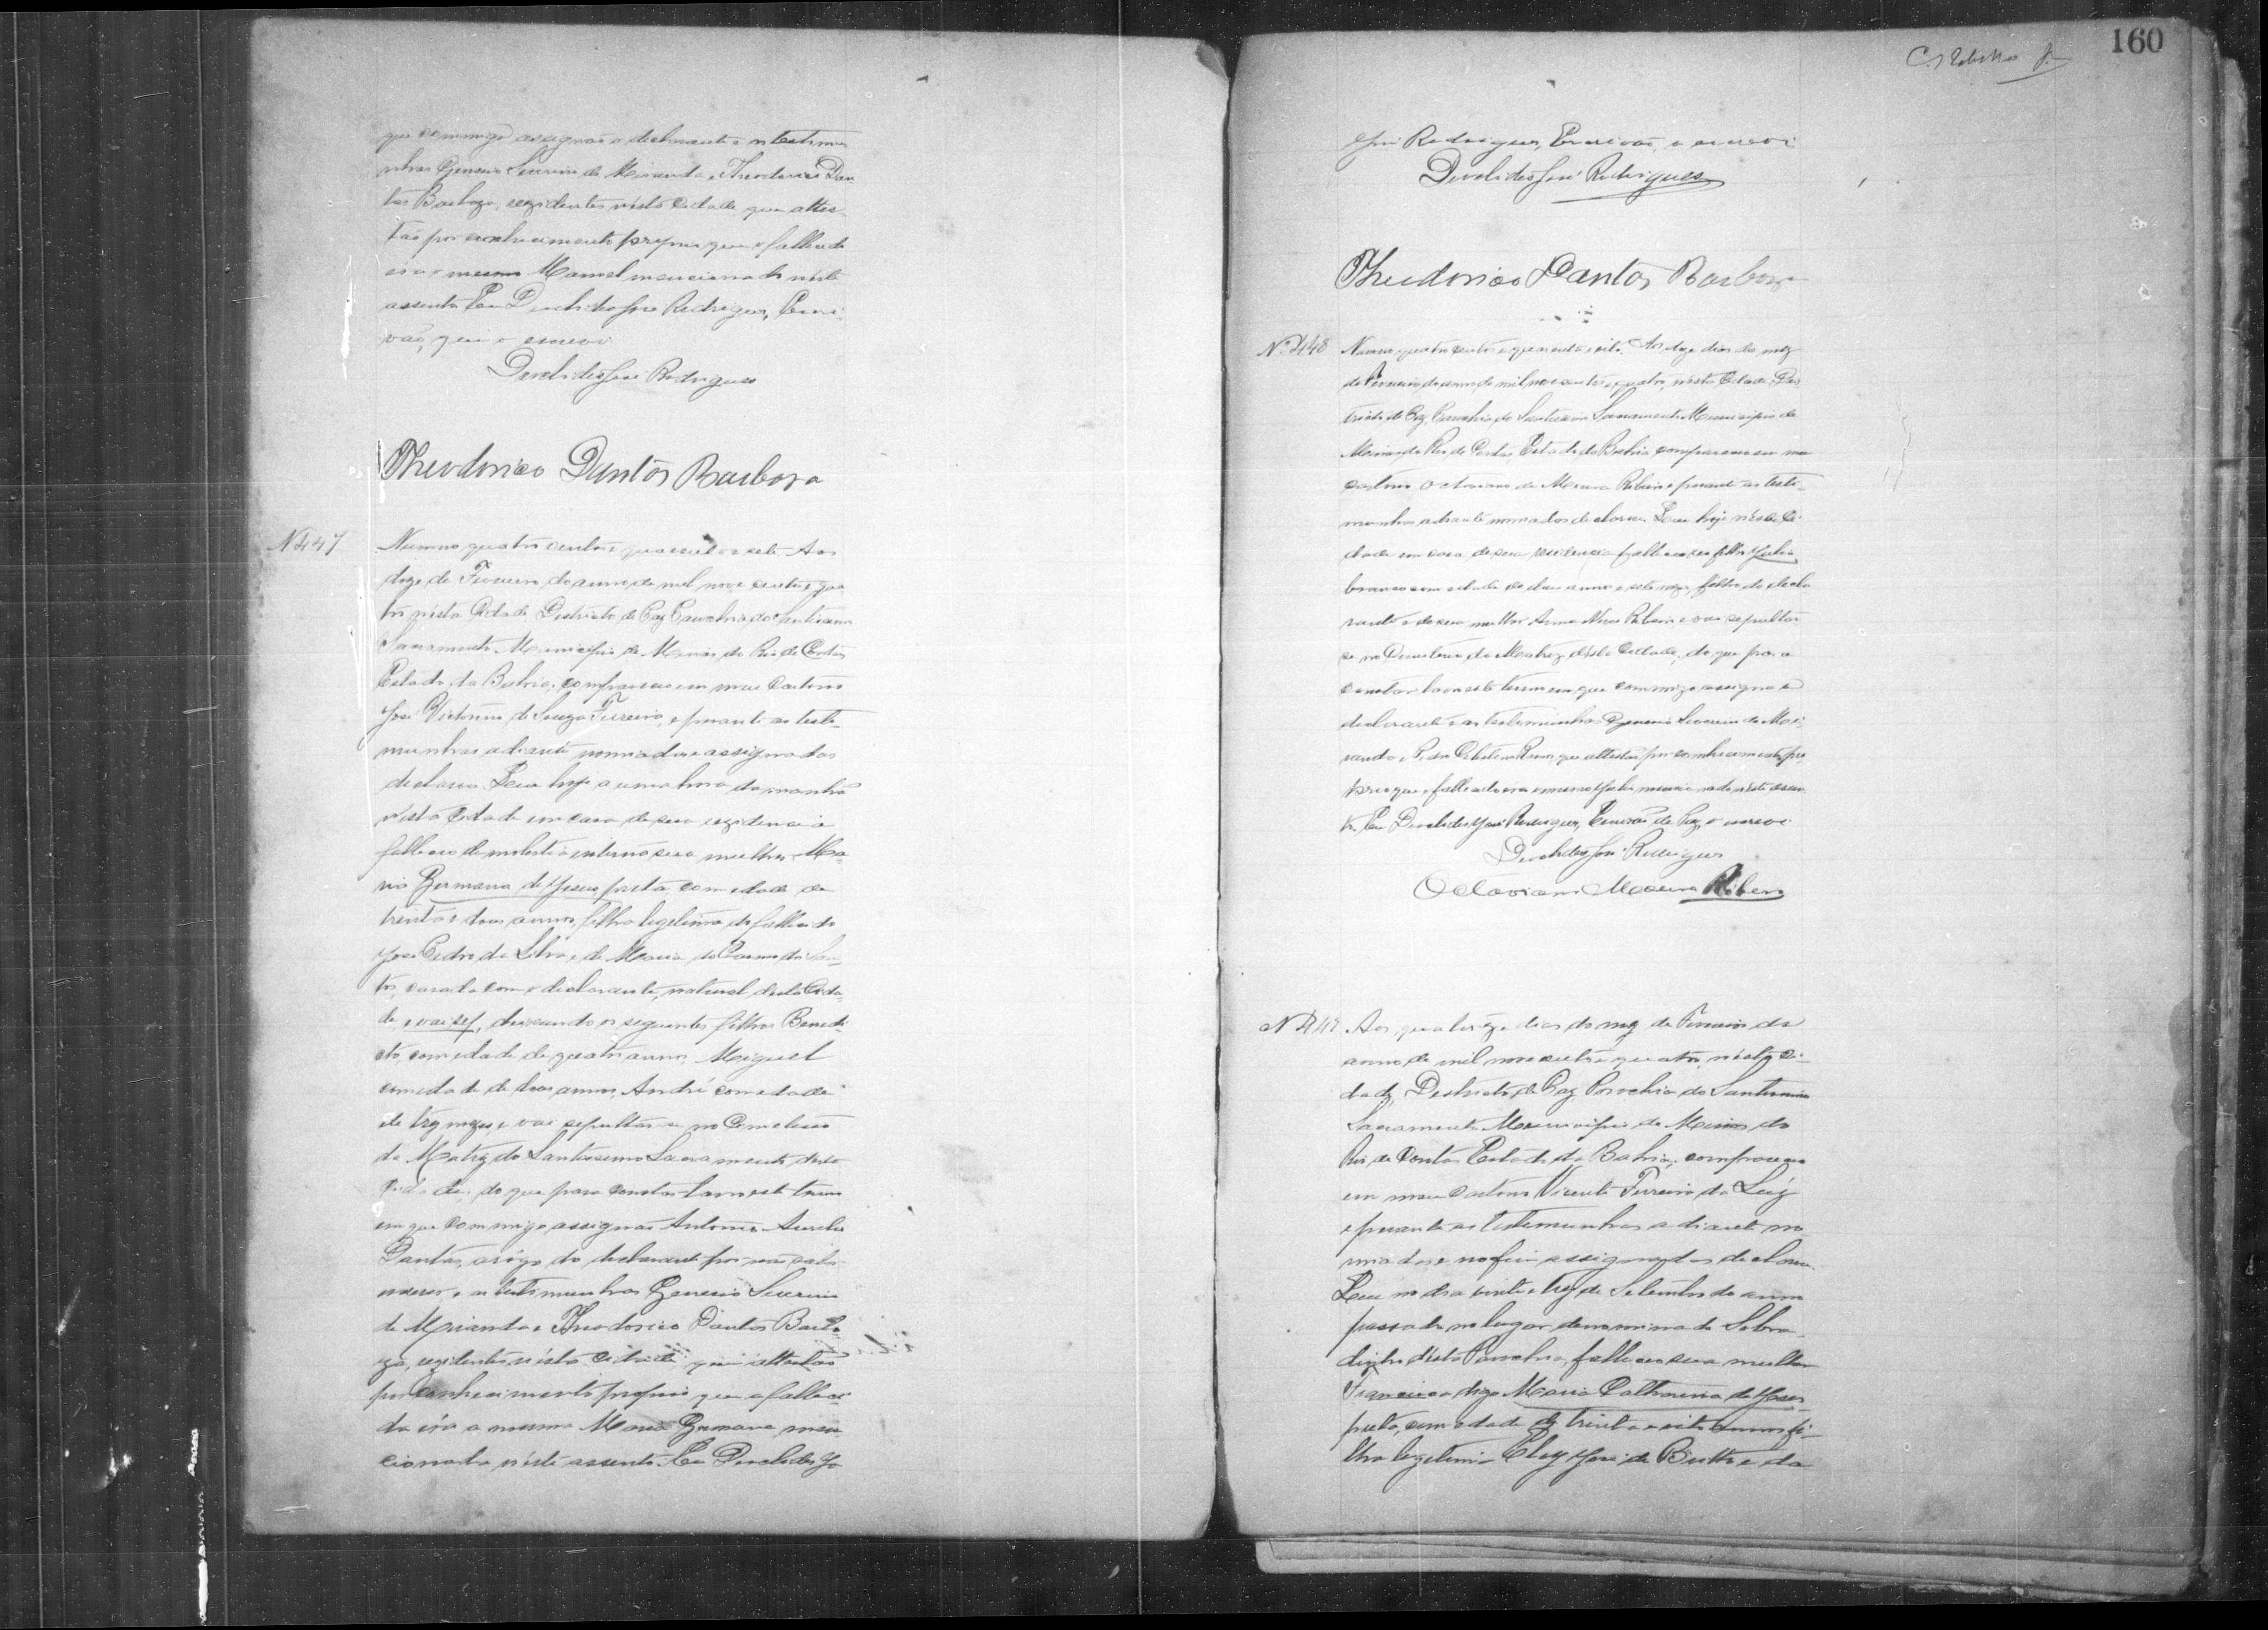 que commigo assignaõ o declarante e as testimu
nhas Genesio Severino de Miranda e Theodorico Dan
tas Barboza, rezidentes nésta Cidade que attes
taõ por conhecimento proprio que o fallecido
era o mesmo Manoel mencionado néste
assento. Eu Deoclides José Rodrigues, Escri-
vaõ, que o escrevi
Deoclides José Rodrigues
Theodorico Dantas Barbosa
N 447
Numero quatro centos e quarenta e sete. Aos
doze de Fevereiro do anno de mil nove centos e qua
tro nésta Cidade Destricto de Paz Parochia do Santissimo
Sacramento Municipio de Minas do Rio de Contas
Estado da Bahia, compareceu em meu Cartorio
José Victorino de Souza Ferreira, e perante as teste-
munhas adiante nomiadas e assignadas
declarou: Que hoje a uma hora da manhã
nésta Cidade em casa de sua rezidencia
falleceu de molestia interna sua mulher Ma
ria Germana de Jesus, preta, com edade de
trinta e dous annos, filha legitima do fallecido
José Pedro da Silva, e de Maria do Carmo dos San-
tos, casada com o declarante, natural désta Cida-
de e vai sep, deixando os seguintes filhos Benedi
cto, com edade de quatro annos, Miguel
com edade de dous annos, André com edade
de trez mezes, e vai sepultar-se no Cemeterio
da Matriz do Santissimo Sacramento désta
Cidade; do que para constar lavro este termo
em que commigo assignaõ Antonio Aurelio
Dantas, arôgo do declarante por naõ saber
escrever, e as testimunhas Genesio Severino
de Miranda e Theodorico Dantas Barbo-
za, rezidentes nésta Cidade que attestaõ
por conhecimento proprio que a falleci-
da éra a mesma Maria Germana men
cionada néste assento. Eu Deoclides Jo
160
sé Rodrigues, Escrivaõ, o escrevi
Deoclides José Rodrigues
Theodorico Dantas Barbosa
N. 448
Numero quatro centos e quarenta e oito. Aos doze dias do mez
de Fevereiro do anno de mil nove centos e quatro, nésta Cidade, Des-
tricto de Paz, Parochia do Santissimo Sacramento Municipio de
Minas do Rio de Contas, Estado da Bahia compareceu em meu
cartorio Octaviano de Moura Ribeiro e perante as teste-
munhas adiante nomiadas declarou: Que hoje nésta Ci-
dade em casa de sua residencia falleceu seo filho Julio,
branco com edade de dous annos e sete mezes, filho do decla
rante e de sua mulher Anna Ribeiro e vai sepultar-
se no Cemeterio da Matriz désta Cidade; do que para
constar lavro este termo em que commigo assigna o
declarante e as testemunhas Genesio Severino de Mi-
randa, e Pedro que attestaõ por conhecimento pro-
prio que o fallecido era o mesmo Julio mencionado néste assen
to. Eu Deoclides José Rodrigues, Escrivaõ de Paz, o escrevi.
Deoclides José Rodrigues
Octaviano Moura Ribeiro
N 449
Aos quatorze dias do mez de Fevereiro do
anno de mil nove centos e quatro, nésta Ci-
dade, Destricto de Paz Parochia do Santissimo
Sacramento Municipio de Minas do
Rio de Contas Estado da Bahia, compareceu
em meu cartorio Vicente Ferreira da Luz
e perante as testemunhas adiante no
miadas e no fim assignadas declarou:
Que no dia vinte e trez de Setembro do anno
passado no lugar denominado Sobra-
dinho désta Parochia, falleceu sua mulher
Francisca digo Maria Catharina de Jesus,
preta, com edade de trinta e oito annos fi-
lha legitima Eloy José de Britto e da